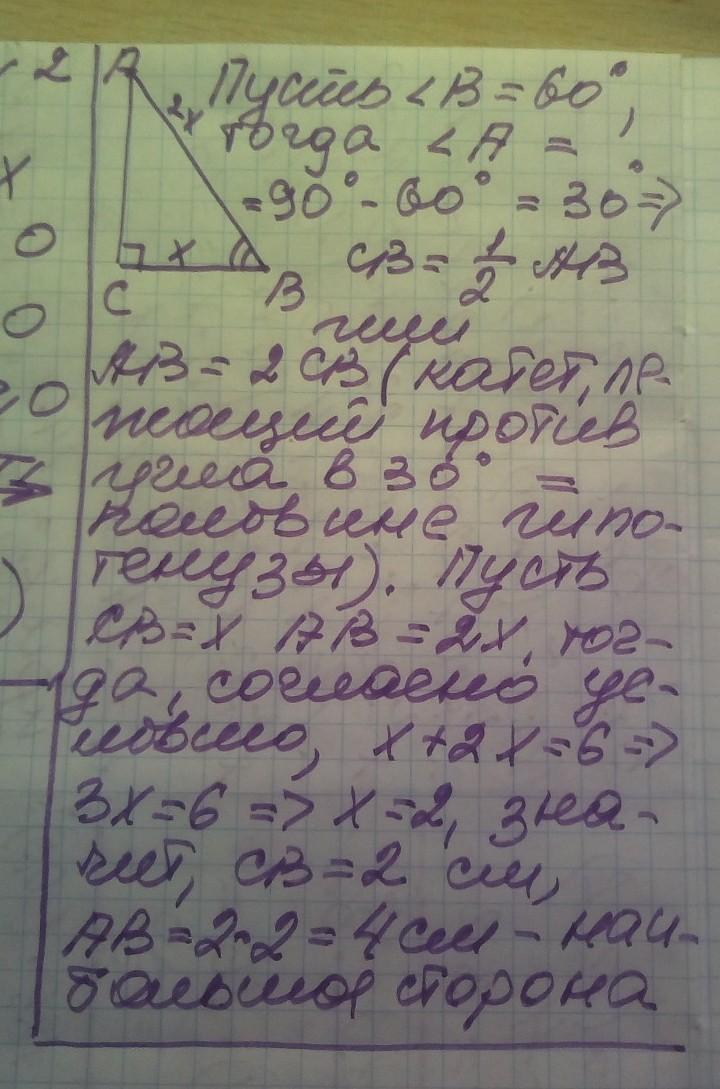 2
х
0
0
0
А
2х
х
С
В
Пусть <В = 60°,
тогда <А =
= 90° - 60° = 30° =>
СВ = 1/2 АВ
или
АВ = 2 СВ (катет, ле-
жащий против
угла в 30° =
половине гипо-
тенузы). Пусть
СВ = х АВ = 2х, тог-
да, согласно ус-
ловию, х + 2х = 6 =>
3х = 6 => х = 2, зна-
чит, СВ = 2 см,
АВ = 2·2 = 4 см - наи-
большая сторона